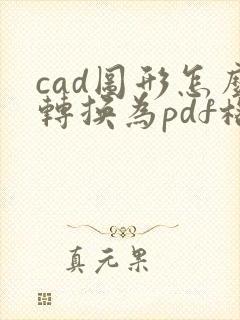 cad圖形怎麼
轉換為pdf格
真元果